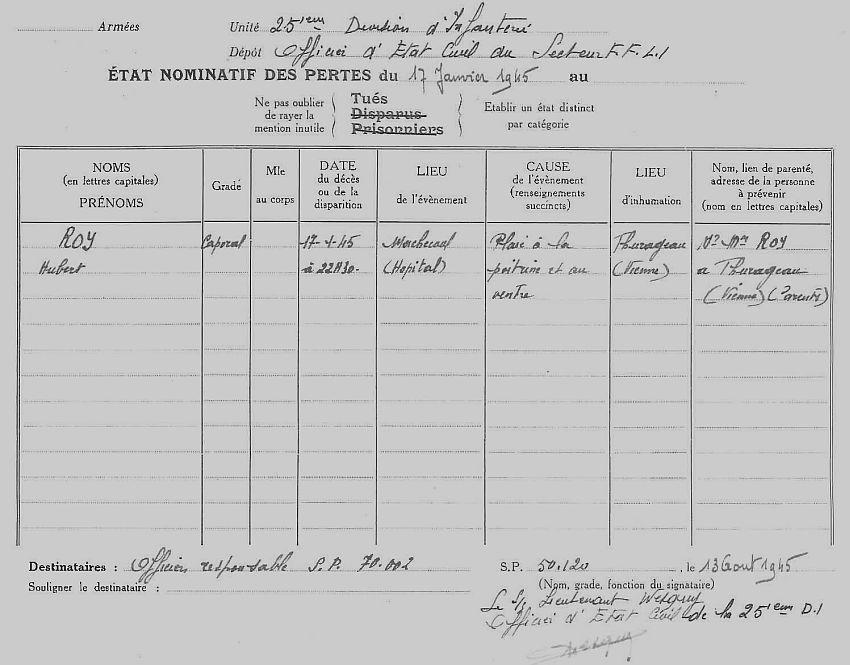 Armées Unité 25ieme Division d'Infanterie
Dépôt Officier d'Etat Civil du Secteur F.F.L.I
ÉTAT NOMINATIF DES PERTES du 17 Janvier 1945 au
Ne pas oublier de rayer la mention inutile
Tués
Disparus
Prisonniers
Etablir un état distinct par catégorie
NOMS (en lettres capitales) PRÉNOMS
Grade
Mle au corps
DATE du décès ou de la disparition
LIEU de l'évènement
CAUSE de l'évènement (renseignements succincts)
LIEU d'inhumation
Nom, lien de parenté, adresse de la personne à prévenir (nom en lettres capitales)
ROY Caporal 17-1-45 Machecoul Plaie à la Thurageau Mr Mme ROY
Hubert à 22H30- (Hopital) poitrine et au (Vienne) a Thurageau
ventre (Vienne) (Parents)
Destinataires : Officier responsable S.P. 70.002 S.P. 50.120 , le 13 Aout 1945
Souligner le destinataire : (Nom, grade, fonction du signataire)
Le S/ Lieutenant
Officier d'Etat Civil de la 25ieme D.I